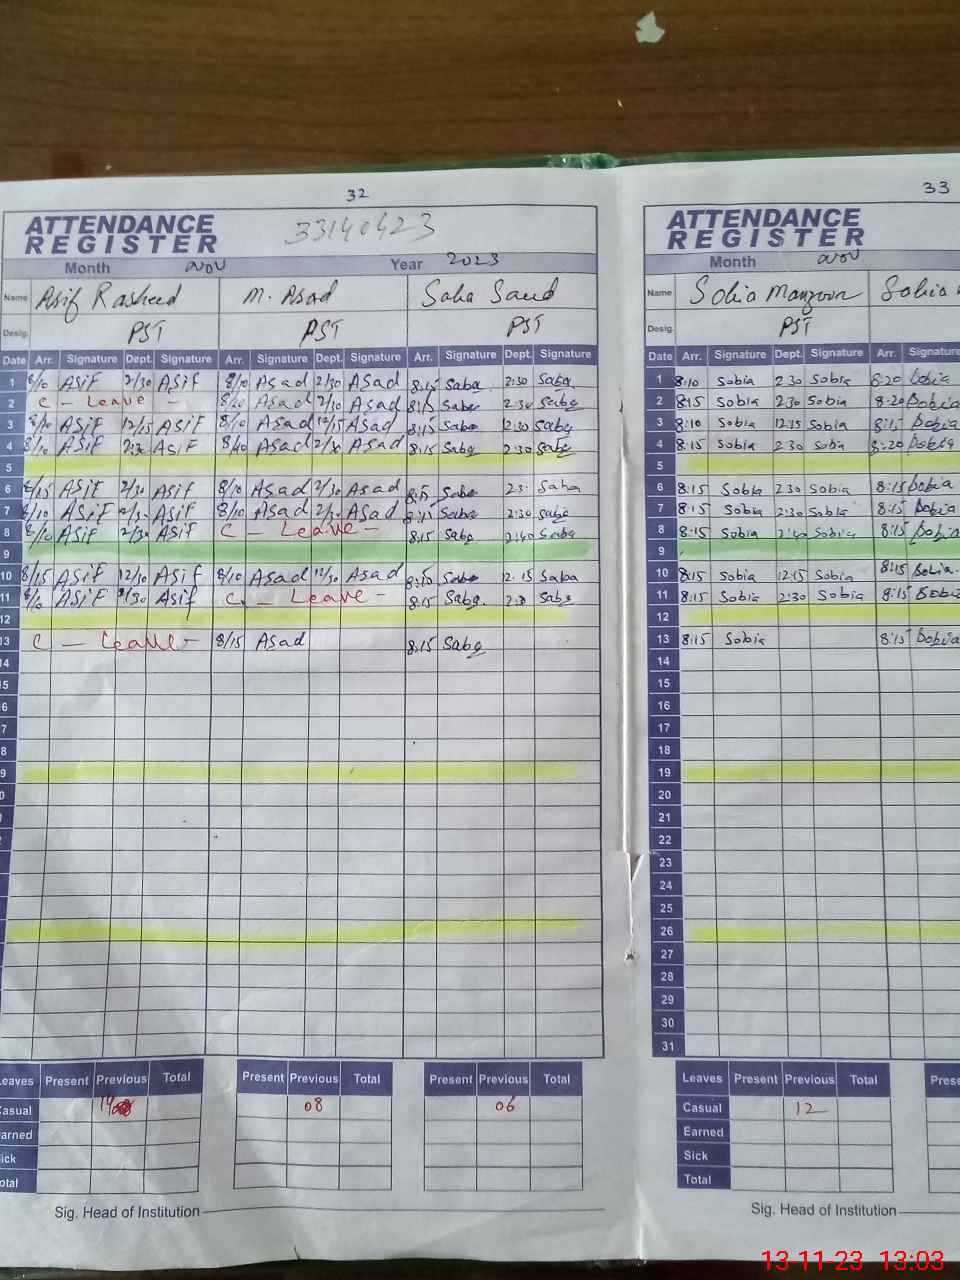 32
ATTENDANCE
REGISTER
33140423
Month Nov Year 2023
Name Asif Rasheed M. Asad Saba Saud
Desig. PST PST PST
Date Arr. Signature Dept. Signature Arr. Signature Dept. Signature Arr. Signature Dept. Signature
1 8/10 ASiF 2/30 ASiF 8/10 Asad 2/30 Asad 8:15 Saba 2:30 Saba
2 C - Leave - 8/10 Asad 2/30 Asad 8:15 Saba 2:30 Saba
3 8/10 ASiF 12/15 ASiF 8/10 Asad 12/15 Asad 8:15 Saba 12:30 Saba
4 8/10 ASiF 2:30 ASiF 8/10 Asad 2/30 Asad 8:15 Saba 2:30 Saba
5
6 8/15 ASiF 2/30 ASiF 8/10 Asad 2/30 Asad 8:15 Saba Saba
7 8/10 ASiF ASiF 8/10 Asad 2/30 Asad 8:15 Saba 2:30 Saba
8 8/10 ASiF 2/30 ASiF C - Leave - 8:15 Saba 2:40 Saba
9
10 8/15 ASiF 12/30 ASiF 8/10 Asad Asad Saba 12.15 Saba
11 8/10 ASiF 2/30 ASiF C - Leave - 8:15 Saba Saba
12
13 C - Leave - 8/15 Asad 8:15 Saba
14
15
6
7
8
9
0
Leaves Present Previous Total Present Previous Total Present Previous Total
Casual 14 08 06
Earned
Sick
Total
Sig. Head of Institution
33
ATTENDANCE
REGISTER
Month Nov
Name Sobia Manzoor Sobia
Desig. PST
Date Arr. Signature Dept. Signature Arr. Signature
1 8:10 Sobia 2 30 Sobia 8:20 Bobia
2 8:15 Sobia 2:30 Sobia 8:20 Bobia
3 8:10 Sobia 12:15 Sobia 8:15 Bobia
4 8:15 Sobia 2 30 Sobia 8:20 Bobia
5
6 8:15 Sobia 2 30 Sobia 8:15 Bobia
7 8:15 Sobia 2:30 Sobia 8:15 Bobia
8 8:15 Sobia 2:40 Sobia 8:15 Bobia
9
10 8:15 Sobia 12:15 Sobia 8:15 Bobia
11 8:15 Sobia 2:30 Sobia 8:15 Bobia
12
13 8:15 Sobia 8:15 Bobia
14
15
16
17
18
19
20
21
22
23
24
25
26
27
28
29
30
31
Leaves Present Previous Total Prese
Casual 12
Earned
Sick
Total
Sig. Head of Institution
13-11-23 13:03